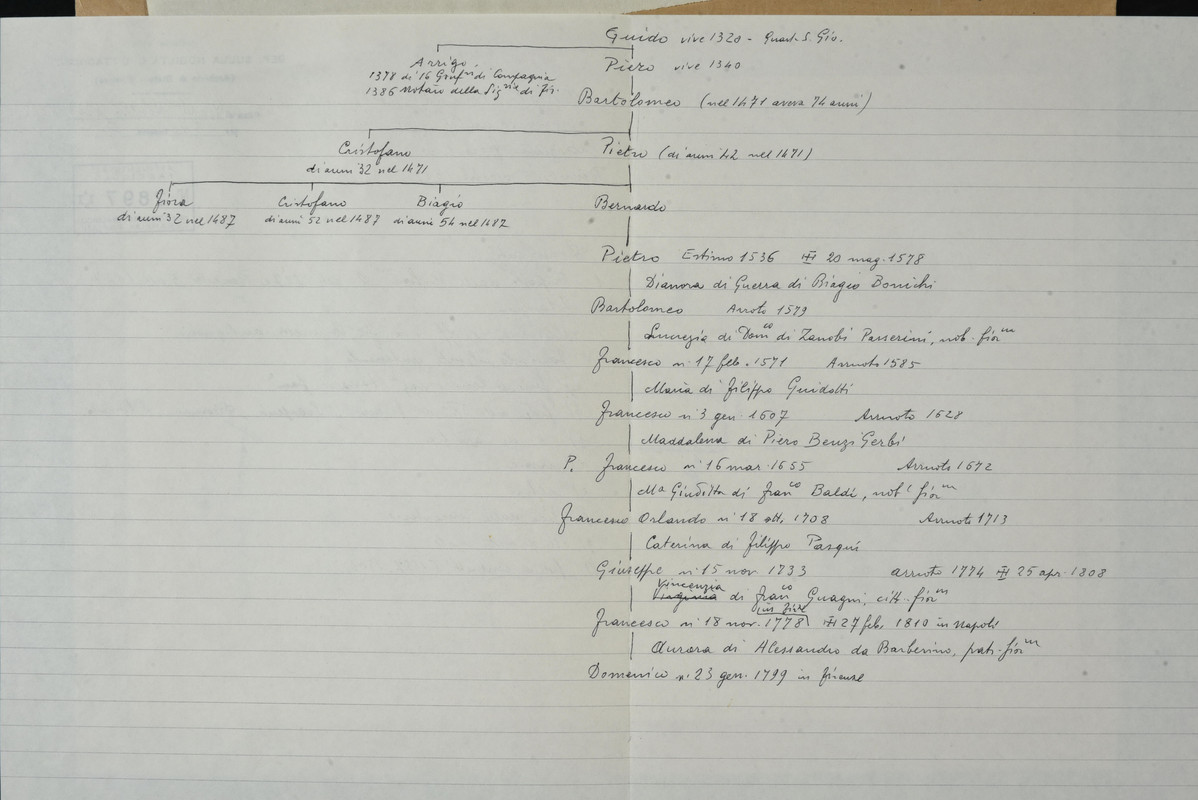 Guido vive 1320 - Quart. S. Gio.
Arrigo
1378 di 16 Gonf.ri di Compagnia
1386 Notaio della Sig.ria di Fir.
Piero vive 1340
Bartolomeo (nel 1471 aveva 74 anni)
Cristofano
di anni 32 nel 1471
Pietro (di anni 42 nel 1471)
Fiora
di anni 32 nel 1487
Cristofano
di anni 52 nel 1487
Biagio
di anni 54 nel 1487
Bernardo
Pietro Estimo 1536 20 mag. 1578
Dianora di Guerra di Biagio Bonichi
Bartolomeo Arroto 1579
Lucrezia di Dom.co di Zanobi Passerini, nob. fior.
Francesco n. 17 feb. 1571 Arruoto 1585
Maria di Filippo Guidotti
Francesco n. 3 gen. 1607 Arruoto 1628
Maddalena di Piero Benzi Gerbi
P. Francesco n. 16 mar. 1655 Arruoto 1672
Mª Giuditta di Fran.co Baldi, nob. fior.
Francesco Orlando n. 18 ott. 1708 Arruoto 1713
Caterina di Filippo Pasqui
Giuseppe n. 15 nov. 1733 arruoto 1774 25 apr. 1808
Vincenzia
Virginia di Fran.co Guagni, citt. fior.
in Fir.
Francesco n. 18 nov. 1778 27 feb. 1810 in Napoli
Aurora di Alessandro da Barberino, patr. fior.
Domenico n. 23 gen. 1799 in Firenze